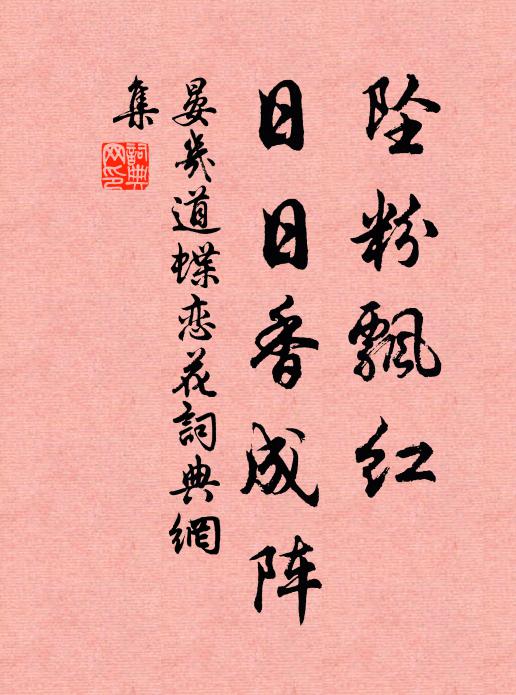 坠粉飘红
日日香成阵
晏几道蝶恋花詞典網
集
詞典網印